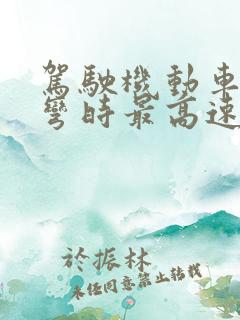 駕駛機動車
彎時最高速
於振林
未經同意禁止轉載